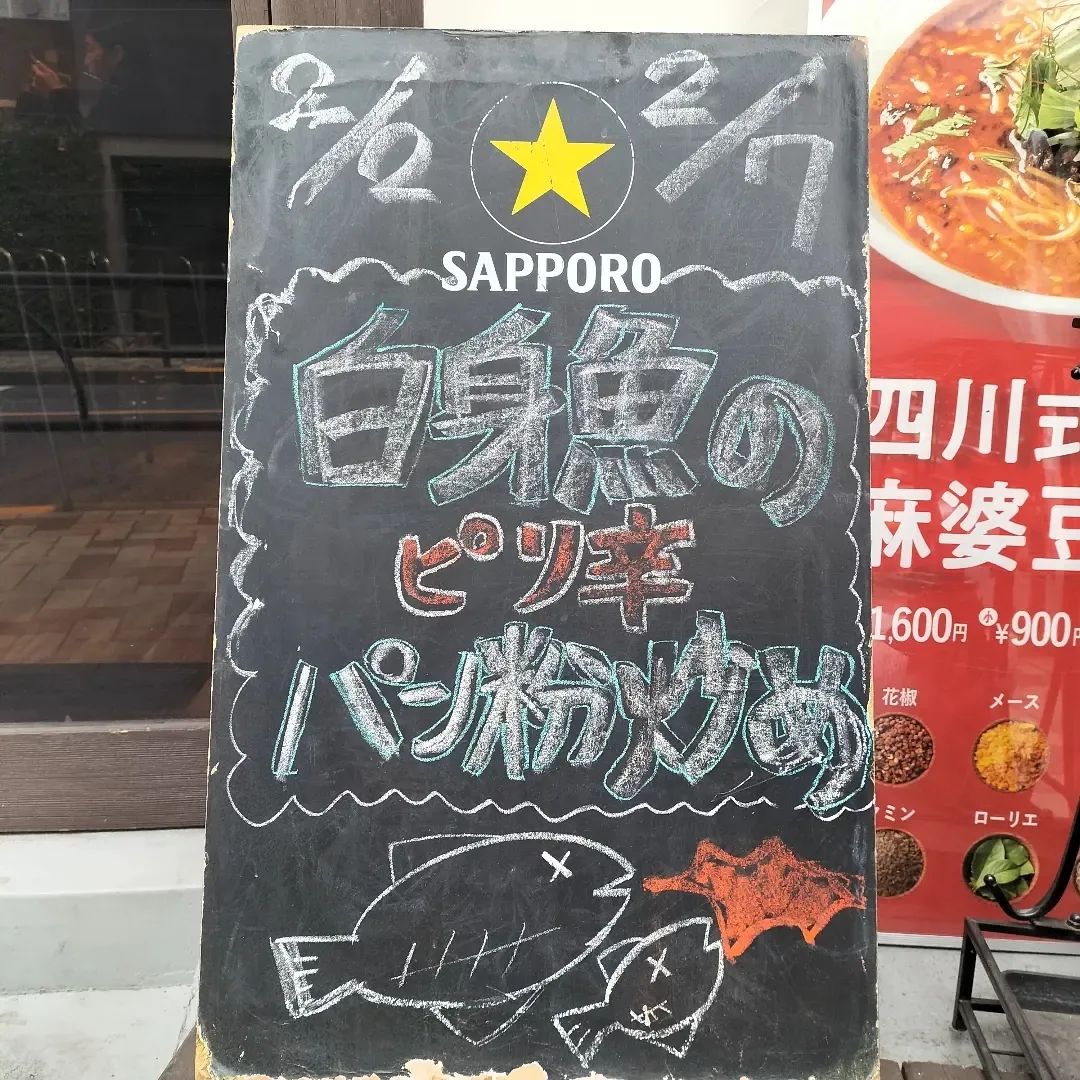 2/2 2/7
SAPPORO
白身魚の
ピリ辛
パン粉炒め
四川式
麻婆豆
1,600円 小 ¥900円
花椒 メース
ミン ローリエ